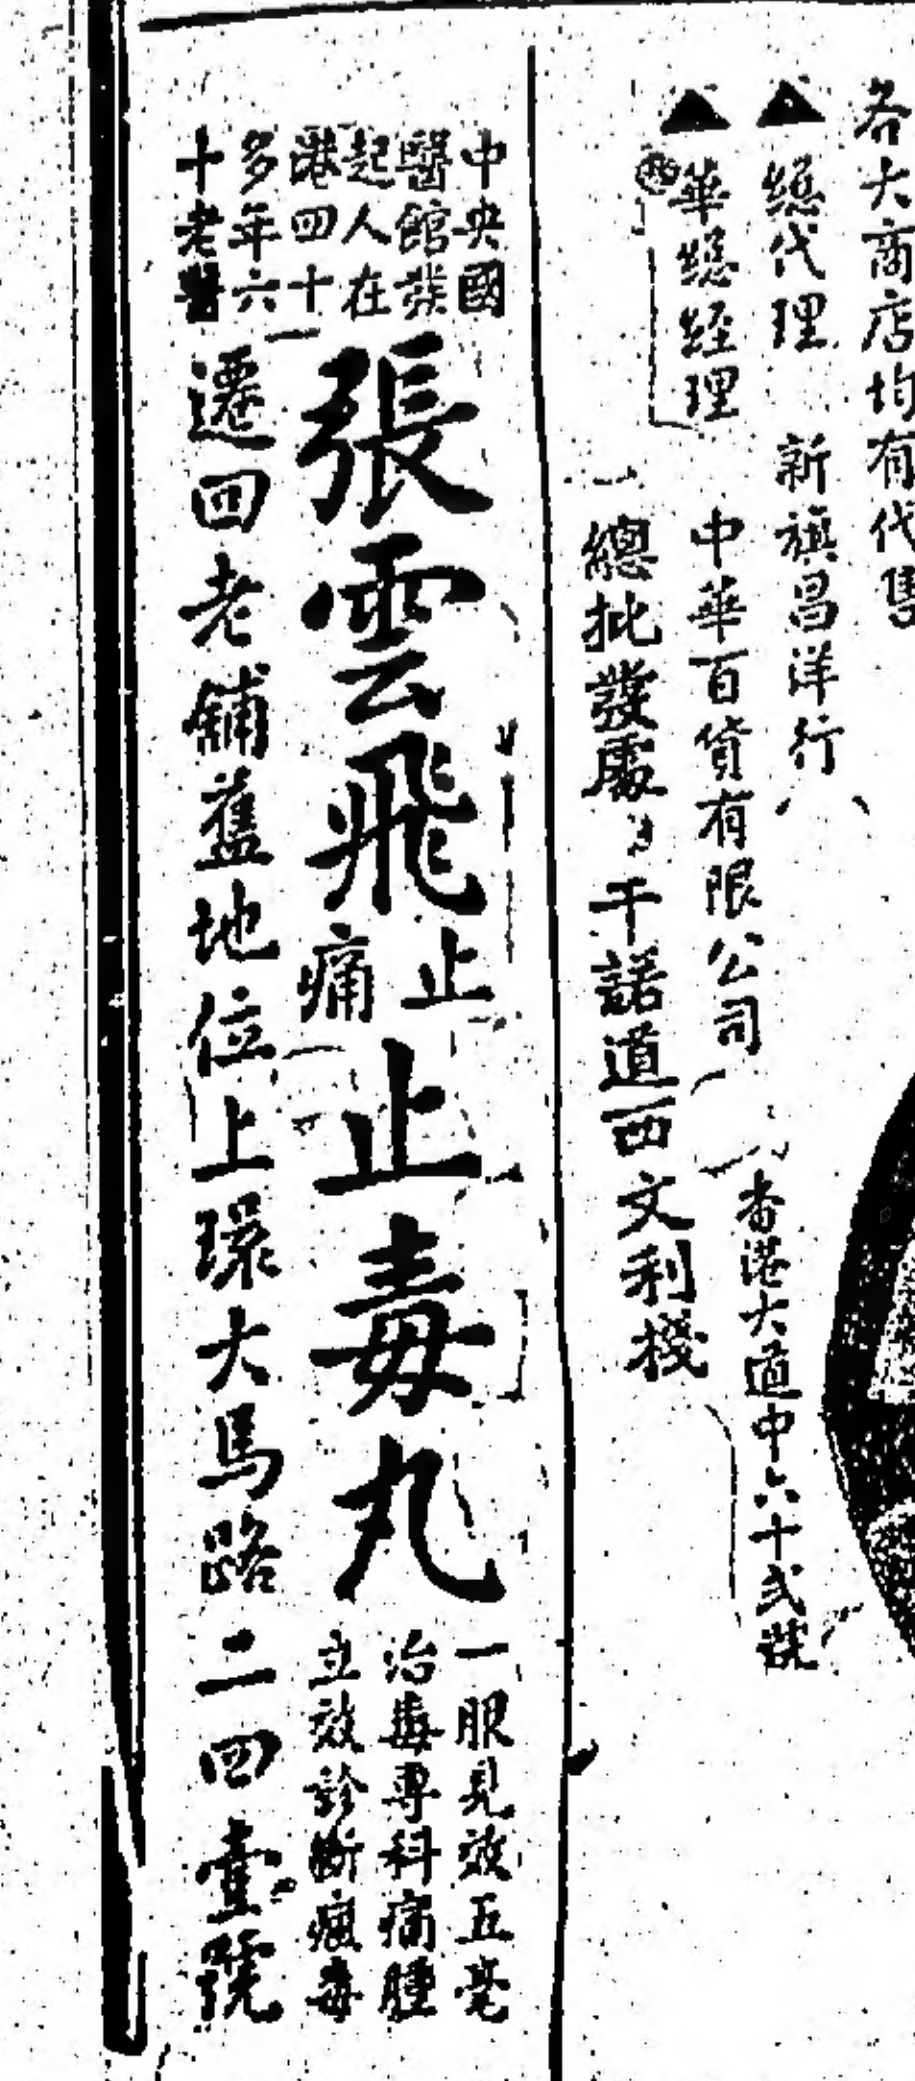 各大商店均有代售
▲總代理 新旗昌洋行
▲華總經理 中華百貨有限公司 香港大道中六十弍號
總批發處 干諾道西文利棧
中央國
醫館發
起人在
港四十
多年六
十老醫
張雲飛
止痛
止毒丸
一服見效五毫
治毒專科痛腫
立效診斷瘋毒
遷回老舖舊地位上環大馬路二四壹號